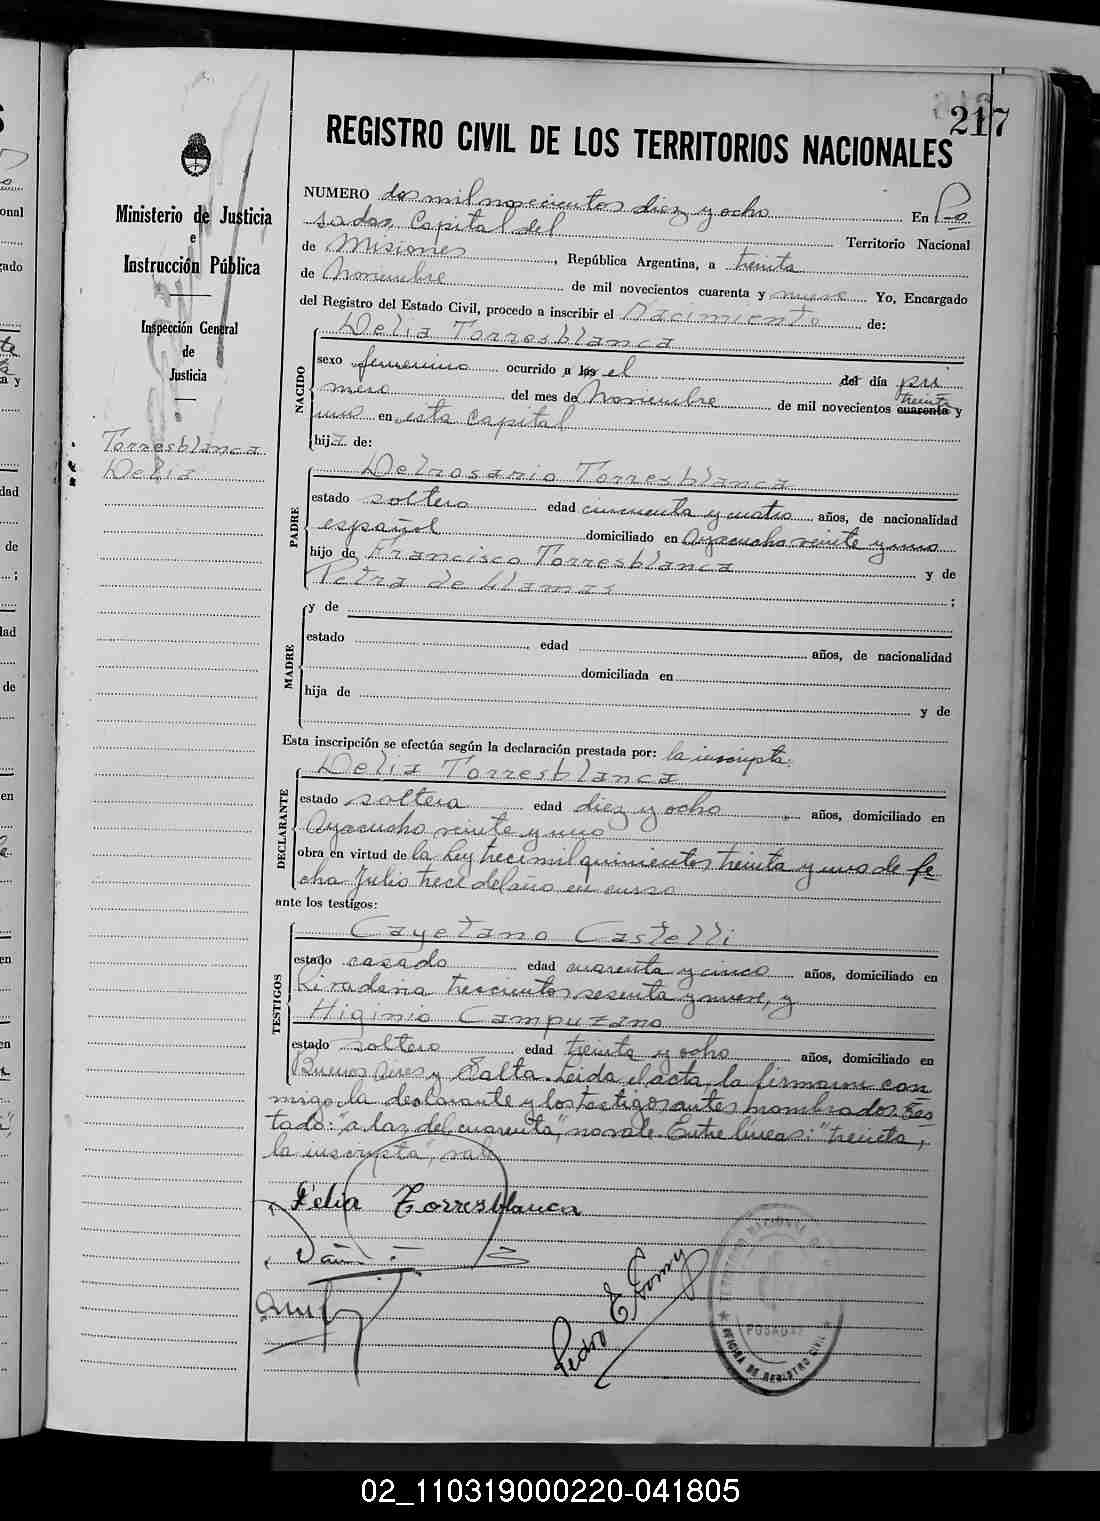 217
REGISTRO CIVIL DE LOS TERRITORIOS NACIONALES
Ministerio de Justicia
e
Instrucción Pública
Inspección General
de
Justicia
Torresblanca
Delia
NUMERO dos mil novecientos diez y ocho En Po
sadas, Capital del Territorio Nacional
de Misiones, República Argentina, a treinta
de Noviembre de mil novecientos cuarenta y nueve Yo, Encargado
del Registro del Estado Civil, procedo a inscribir el Nacimiento de:
NACIDO
Delia Torresblanca
sexo femenino ocurrido a las el del día pri
mero del mes de Noviembre de mil novecientos cuarenta y
treinta
uno en esta capital
hija de:
PADRE
Delrosario Torresblanca
estado soltero edad cincuenta y cuatro años, de nacionalidad
español domiciliado en Ayacucho veinte y uno
hijo de Francisco Torresblanca y de
Petra de Llamas ;
MADRE
y de
estado , edad años, de nacionalidad
domiciliada en
hija de y de
Esta inscripción se efectúa según la declaración prestada por: la inscripta:
DECLARANTE
Delia Torresblanca
estado soltera edad diez y ocho , años, domiciliado en
Ayacucho veinte y uno
obra en virtud de la Ley trece mil quinientos treinta y uno de fe
cha Julio trece del año en curso
ante los testigos:
TESTIGOS
Cayetano Castelli
estado casado edad cuarenta y cinco años, domiciliado en
Rivadavia trescientos sesenta y nueve, y
Higinio Campuzano
estado soltero edad treinta y ocho años, domiciliado en
Buenos Aires y Salta. Leida el acta, la firmaron con
migo la declarante y los testigos antes nombrados. Tes
tado: "a las, del, cuarenta", no vale. Entre líneas: "treinta,
la inscripta", vale
Delia Torresblanca
Pedro E
TERRITORIO NACIONAL
POSADAS
OFICINA DE REGISTRO CIVIL
02_110319000220-041805